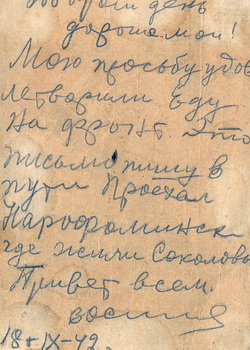 день
дорогие мои!
Мою просьбу удов
летворили Еду
на фронт. Это
письмо пишу в
пути Проехал
Нарофоминск
где жили Соколовы
Привет всем
18-IX-42.